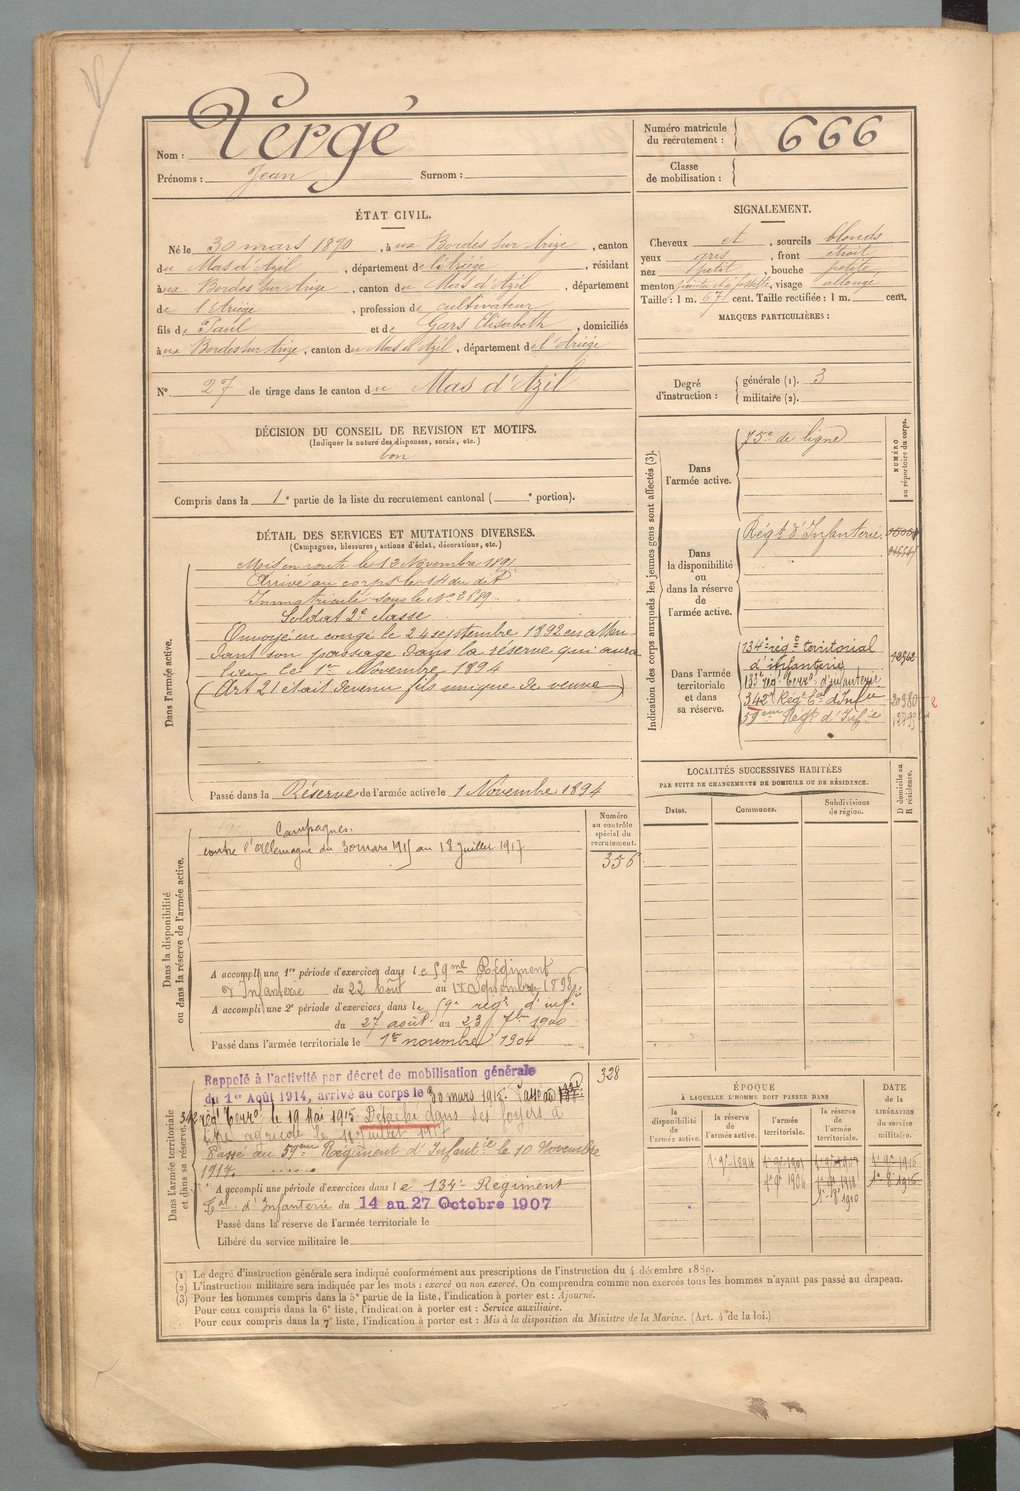 Nom : Vergé
Prénoms : Jean Surnom :
Numéro matricule du recrutement : 666
Classe de mobilisation :
ÉTAT CIVIL.
Né le 30 mars 1870, à ux Bordes sur Arize, canton
du Mas d'Azil, département de l'Ariège, résidant
à ux Bordes sur Arize, canton du Mas d'Azil, département
de l'Ariège, profession de cultivateur
fils de Paul et de Gars Elisabeth, domiciliés
à ux Bordes sur Arize, canton du Mas d'Azil, département de l'Ariège
N° 27 de tirage dans le canton du Mas d'Azil
SIGNALEMENT.
Cheveux et, sourcils blonds
yeux gris, front étroit
nez petit, bouche petite,
menton, visage allongé
Taille : 1 m. 67 cent. Taille rectifiée : 1 m. cent.
MARQUES PARTICULIÈRES :
Degré d'instruction : générale (1). 3
militaire (2).
DÉCISION DU CONSEIL DE REVISION ET MOTIFS.
(Indiquer la nature des dispenses, sursis, etc.)
bon
Compris dans la 1e partie de la liste du recrutement cantonal ( e portion).
DÉTAIL DES SERVICES ET MUTATIONS DIVERSES.
(Campagnes, blessures, actions d'éclat, décorations, etc.)
Dans l'armée active.
Mis en route le 13 Novembre 1891.
Arrivé au corps le 14 du dit
Immatriculé sous le N°
Soldat 2e classe
Envoyé en congé le 24 septembre 1892 en atten
dant son passage dans la réserve qui aura
lieu le 1er Novembre 1894
(Art 21 était devenu fils unique de veuve)
Passé dans la Réserve de l'armée active le 1 Novembre 1894
Indication des corps auxquels les jeunes gens sont affectés (3).
NUMÉRO au répertoire du corps.
Dans l'armée active.
75e de ligne
Dans la disponibilité ou dans la réserve de l'armée active.
Régt d'Infanterie
Dans l'armée territoriale et dans sa réserve.
134e régt territorial
d'infanterie
133e régt terral d'infanterie
342e Régt tal d'Infie
59eme Régt d'Infie
LOCALITÉS SUCCESSIVES HABITÉES
PAR SUITE DE CHANGEMENTS DE DOMICILE OU DE RÉSIDENCE.
Dates. Communes. Subdivisions de région. D domicile ou R résidence.
Dans la disponibilité ou dans la réserve de l'armée active.
Numéro au contrôle spécial du recrutement.
356
Campagnes.
contre l'Allemagne du 30 mars 1915 au 18 juillet 1917
A accompli une 1re période d'exercices dans le 59me Régiment
d'Infanterie du 22 août au 18 Septembre 1898
A accompli une 2e période d'exercices dans le 59e régt d'inf.
du 27 août au 23 7bre 1900
Passé dans l'armée territoriale le 1er novembre 1904
Dans l'armée territoriale et dans sa réserve.
328
Rappelé à l'activité par décret de mobilisation générale
du 1er Août 1914, arrivé au corps le 30 mars 1915. Passé au
342e régt Terral le 19 Mai 1915 Détaché dans ses foyers à
titre agricole le juillet 1917
Passé au 59eme Régiment d'Infantie le 10 Novembre
1917.
A accompli une période d'exercices dans le 134e Régiment
tal d'Infanterie du 14 au 27 Octobre 1907
Passé dans la réserve de l'armée territoriale le
Libéré du service militaire le
ÉPOQUE
À LAQUELLE L'HOMME DOIT PASSER DANS
la disponibilité de l'armée active. la réserve de l'armée active. l'armée territoriale. la réserve de l'armée territoriale.
DATE DE LA LIBÉRATION du service militaire.
1 9bre 1894
(1) Le degré d'instruction générale sera indiqué conformément aux prescriptions de l'instruction du 4 décembre 1889.
(2) L'instruction militaire sera indiquée par les mots : exercé ou non exercé. On comprendra comme non exercés tous les hommes n'ayant pas passé au drapeau.
(3) Pour les hommes compris dans la 5e partie de la liste, l'indication à porter est : Ajourné.
Pour ceux compris dans la 6e liste, l'indication à porter est : Service auxiliaire.
Pour ceux compris dans la 7e liste, l'indication à porter est : Mis à la disposition du Ministre de la Marine. (Art. 4 de la loi.)